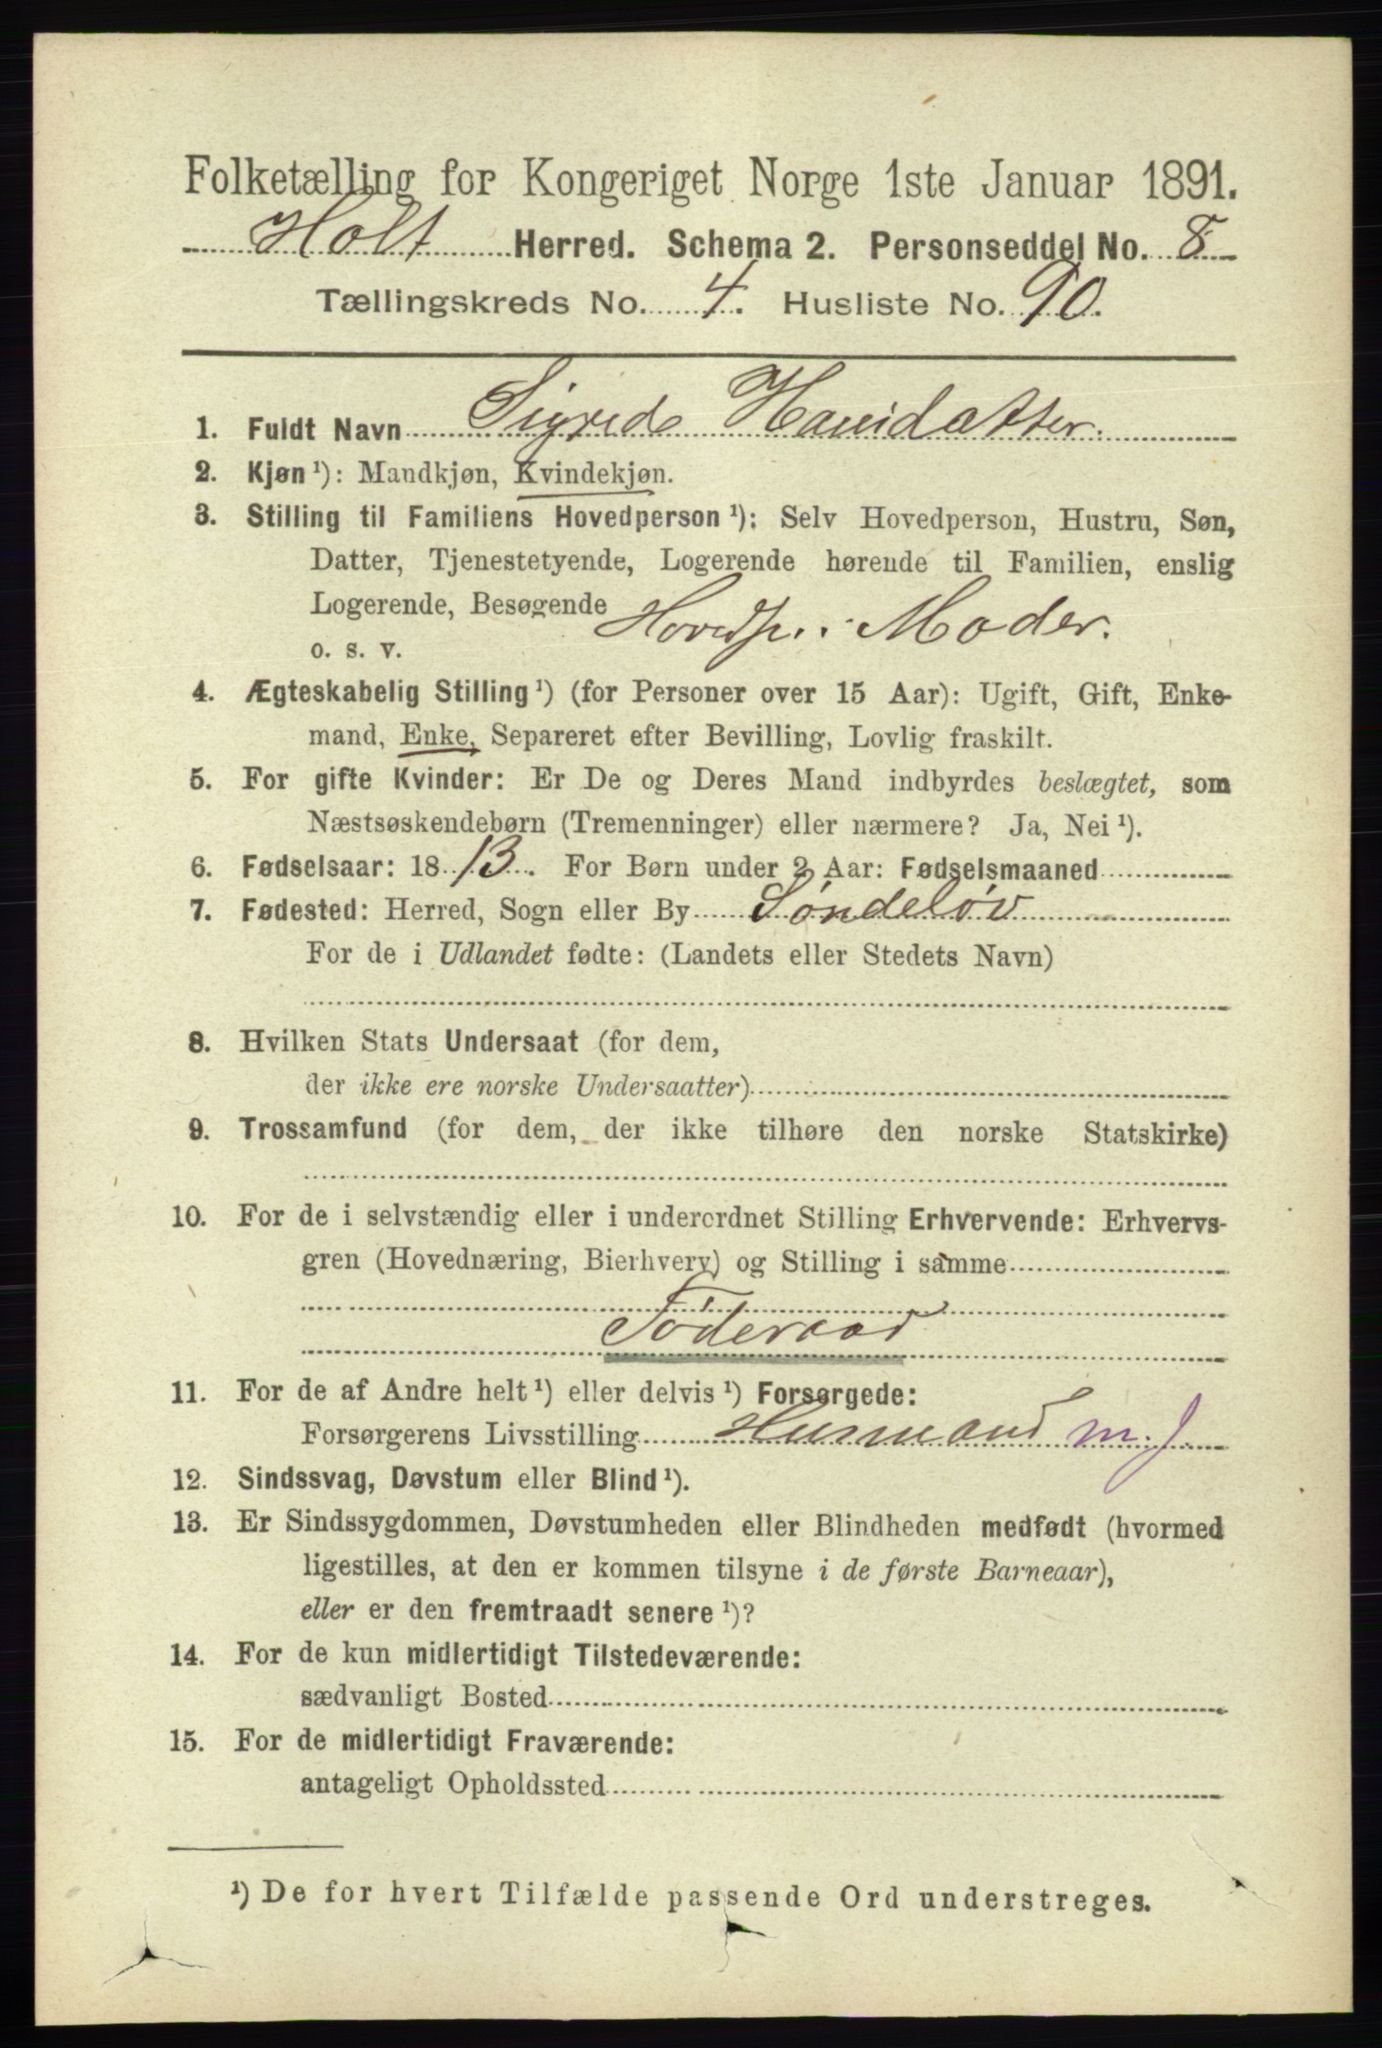 Folketælling for Kongeriget Norge 1ste Januar 1891.
Holt Herred. Schema 2. Personseddel No. 8
Tællingskreds No. 4. Husliste No. 90.
1. Fuldt Navn Sigrid Hansdatter.
2. Kjøn ¹): Mandkjøn, Kvindekjøn.
3. Stilling til Familiens Hovedperson ¹): Selv Hovedperson, Hustru, Søn,
Datter, Tjenestetyende, Logerende hørende til Familien, enslig
Logerende, Besøgende
o. s. v. Hovedp.. Moder.
4. Ægteskabelig Stilling ¹) (for Personer over 15 Aar): Ugift, Gift, Enke-
mand, Enke, Separeret efter Bevilling, Lovlig fraskilt.
5. For gifte Kvinder: Er De og Deres Mand indbyrdes beslægtet, som
Næstsøskendebørn (Tremenninger) eller nærmere? Ja, Nei ¹).
6. Fødselsaar: 1813. For Børn under 2 Aar: Fødselsmaaned
7. Fødested: Herred, Sogn eller By Söndelöv
For de i Udlandet fødte: (Landets eller Stedets Navn)
8. Hvilken Stats Undersaat (for dem,
der ikke ere norske Undersaatter)
9. Trossamfund (for dem, der ikke tilhøre den norske Statskirke)
10. For de i selvstændig eller i underordnet Stilling Erhvervende: Erhvervs-
gren (Hovednæring, Bierhverv) og Stilling i samme
Föderaad
11. For de af Andre helt ¹) eller delvis ¹) Forsørgede:
Forsørgerens Livsstilling Husmand m. J.
12. Sindssvag, Døvstum eller Blind ¹).
13. Er Sindssygdommen, Døvstumheden eller Blindheden medfødt (hvormed
ligestilles, at den er kommen tilsyne i de første Barneaar),
eller er den fremtraadt senere ¹)?
14. For de kun midlertidigt Tilstedeværende:
sædvanligt Bosted
15. For de midlertidigt Fraværende:
antageligt Opholdssted
¹) De for hvert Tilfælde passende Ord understreges.